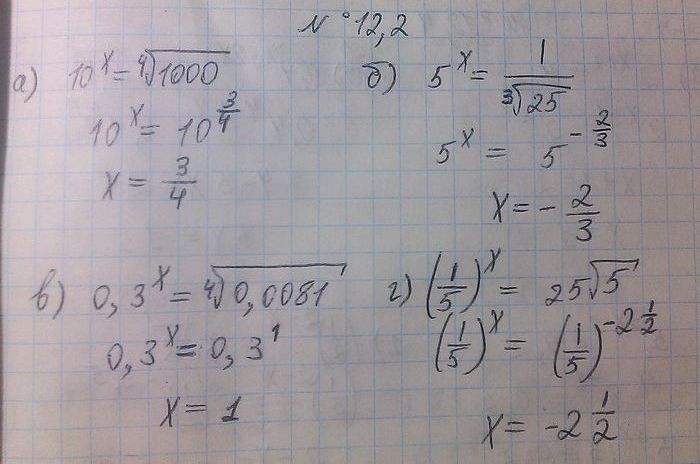 N° 12,2
а) 10^x = ∜1000
10^x = 10^(3/4)
x = 3/4
б) 5^x = 1/∛25
5^x = 5^(-2/3)
x = - 2/3
в) 0,3^x = ∜0,0081
0,3^x = 0,3^1
x = 1
г) (1/5)^x = 25√5
(1/5)^x = (1/5)^(-2 1/2)
x = -2 1/2